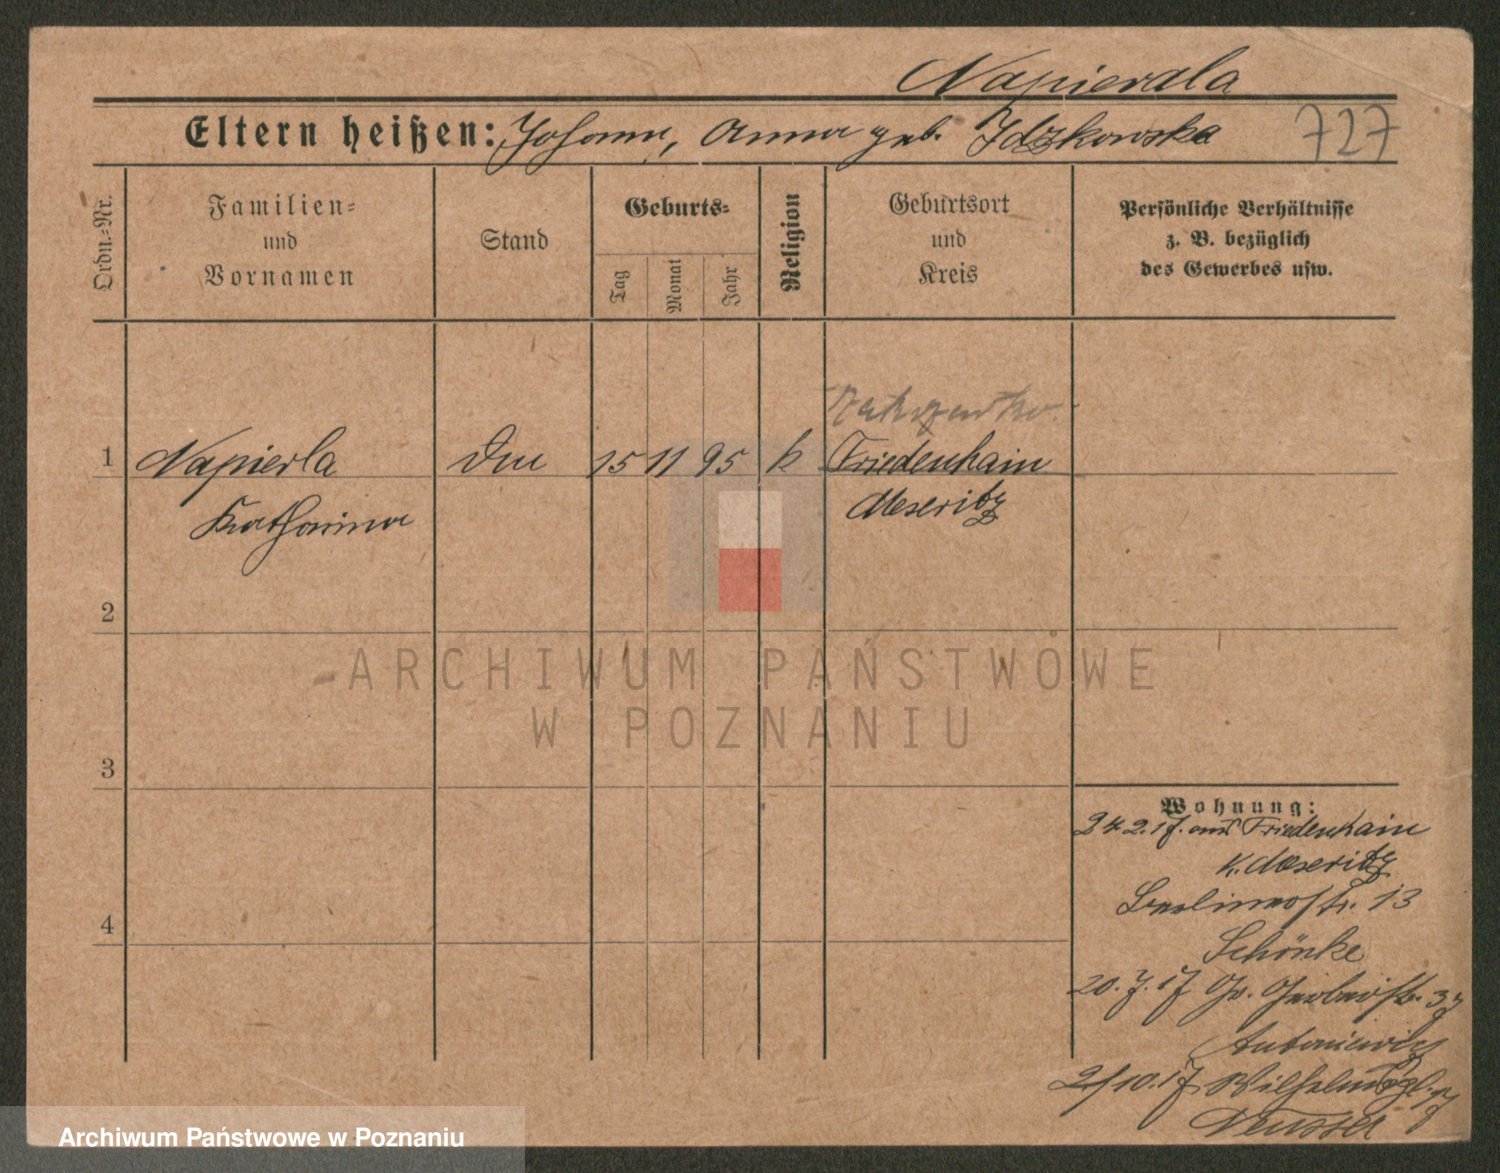 Napierala
Eltern heißen: Johann, Anna geb. Idzkowska
727
Ordn.=Nr.
Familien=
und
Vornamen
Stand
Geburts=
Tag
Monat
Jahr
Religion
Geburtsort
und
Kreis
Persönliche Verhältnisse
z. B. bezüglich
des Gewerbes usw.
1 Napierla 15 11 95 k Friedenhain
Katharina Meseritz
2
3
4
Wohnung:
24.2.17. aus Friedenhain
K. Meseritz
Berlinerstr. 13
Schönke
20.7.17 Gr. Gerberstr. 37
Antoniewicz
2/10.17 Wilhelmspl. 17
Neusser
ARCHIWUM PAŃSTWOWE
W POZNANIU
Archiwum Państwowe w Poznaniu